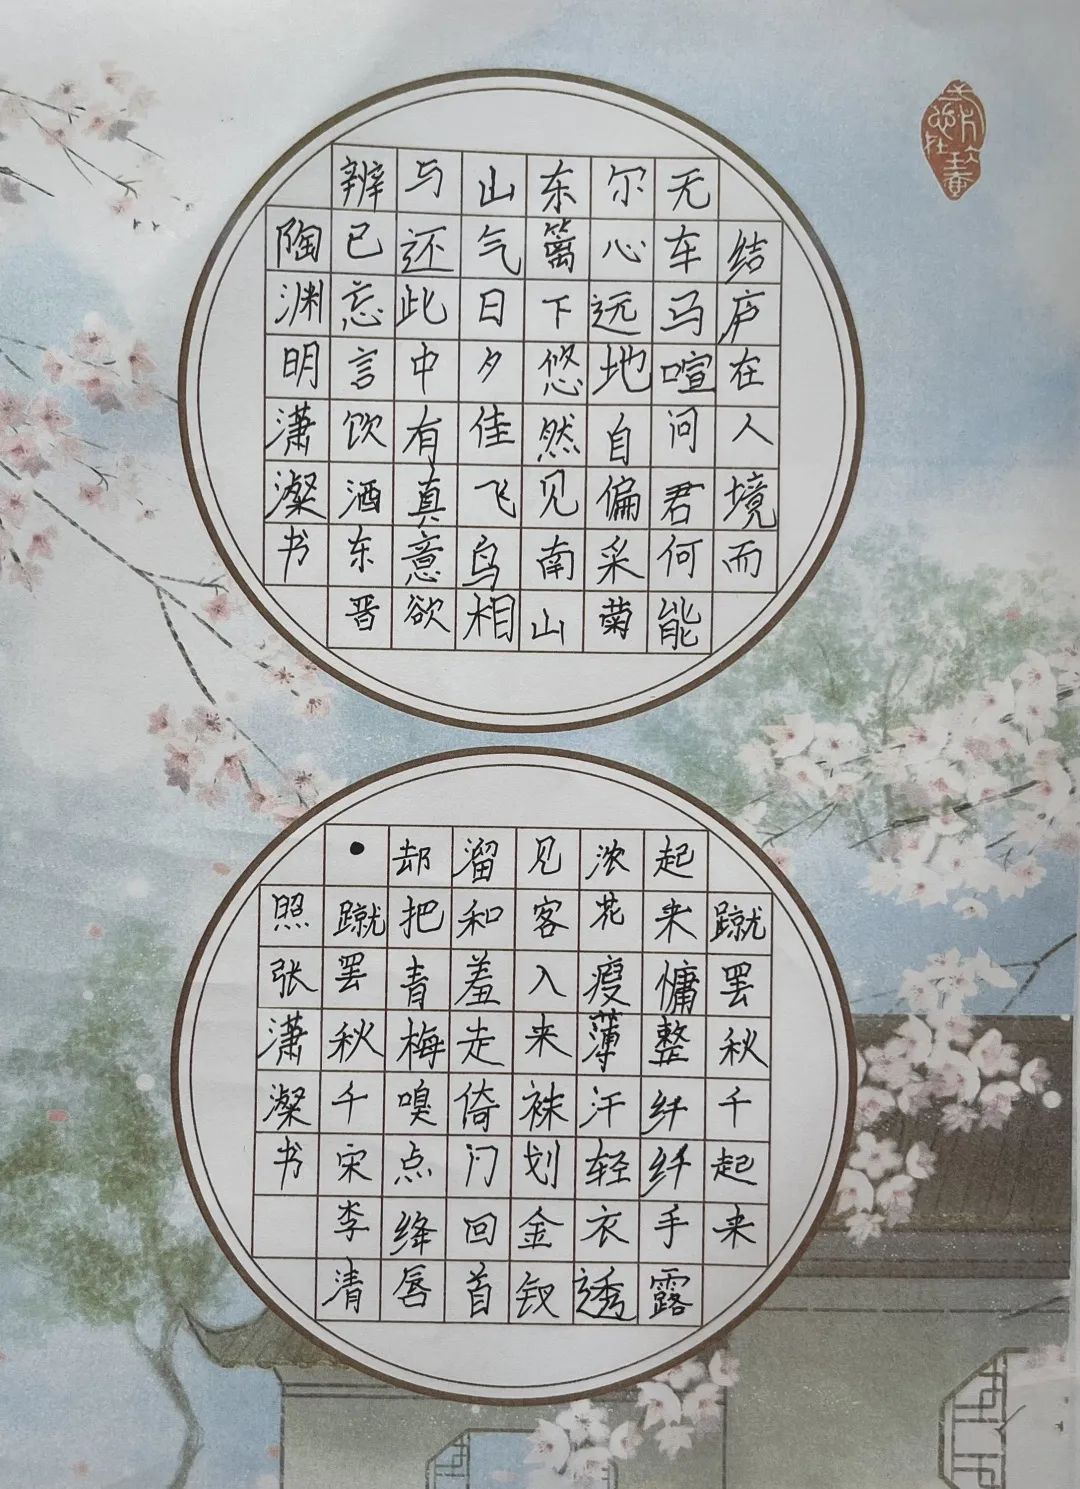 结庐在人境而
无车马喧问君何能
尔心远地自偏采菊
东篱下悠然见南山
山气日夕佳飞鸟相
与还此中有真意欲
辨已忘言饮酒东晋
陶渊明潇澯书
蹴罢秋千起来
起来慵整纤纤手露
浓花瘦薄汗轻衣透
见客入来袜划金钗
溜和羞走倚门回首
却把青梅嗅点绛唇
•蹴罢秋千宋李清
照张潇澯书